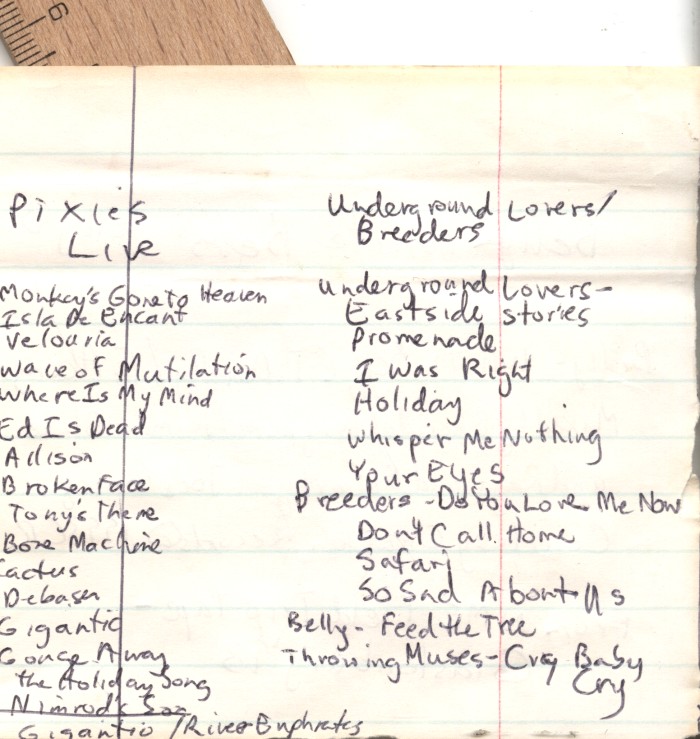 6
Pixies
Live
Monkey's Gone to Heaven
Isla De Encant
Velouria
Wave of Mutilation
Where Is My Mind
Ed Is Dead
Allison
Broken Face
Tony's Theme
Bone Machine
Cactus
Debaser
Gigantic
Gouge Away
the Holiday Song
Nimrod's Son
Gigantic / River Euphrates
Underground Lovers/
Breeders
Underground Lovers-
Eastside stories
Promenade
I Was Right
Holiday
Whisper Me Nothing
Your Eyes
Breeders - Do You Love Me Now
Don't Call Home
Safari
So Sad About Us
Belly - Feed the Tree
Throwing Muses - Cry Baby
Cry